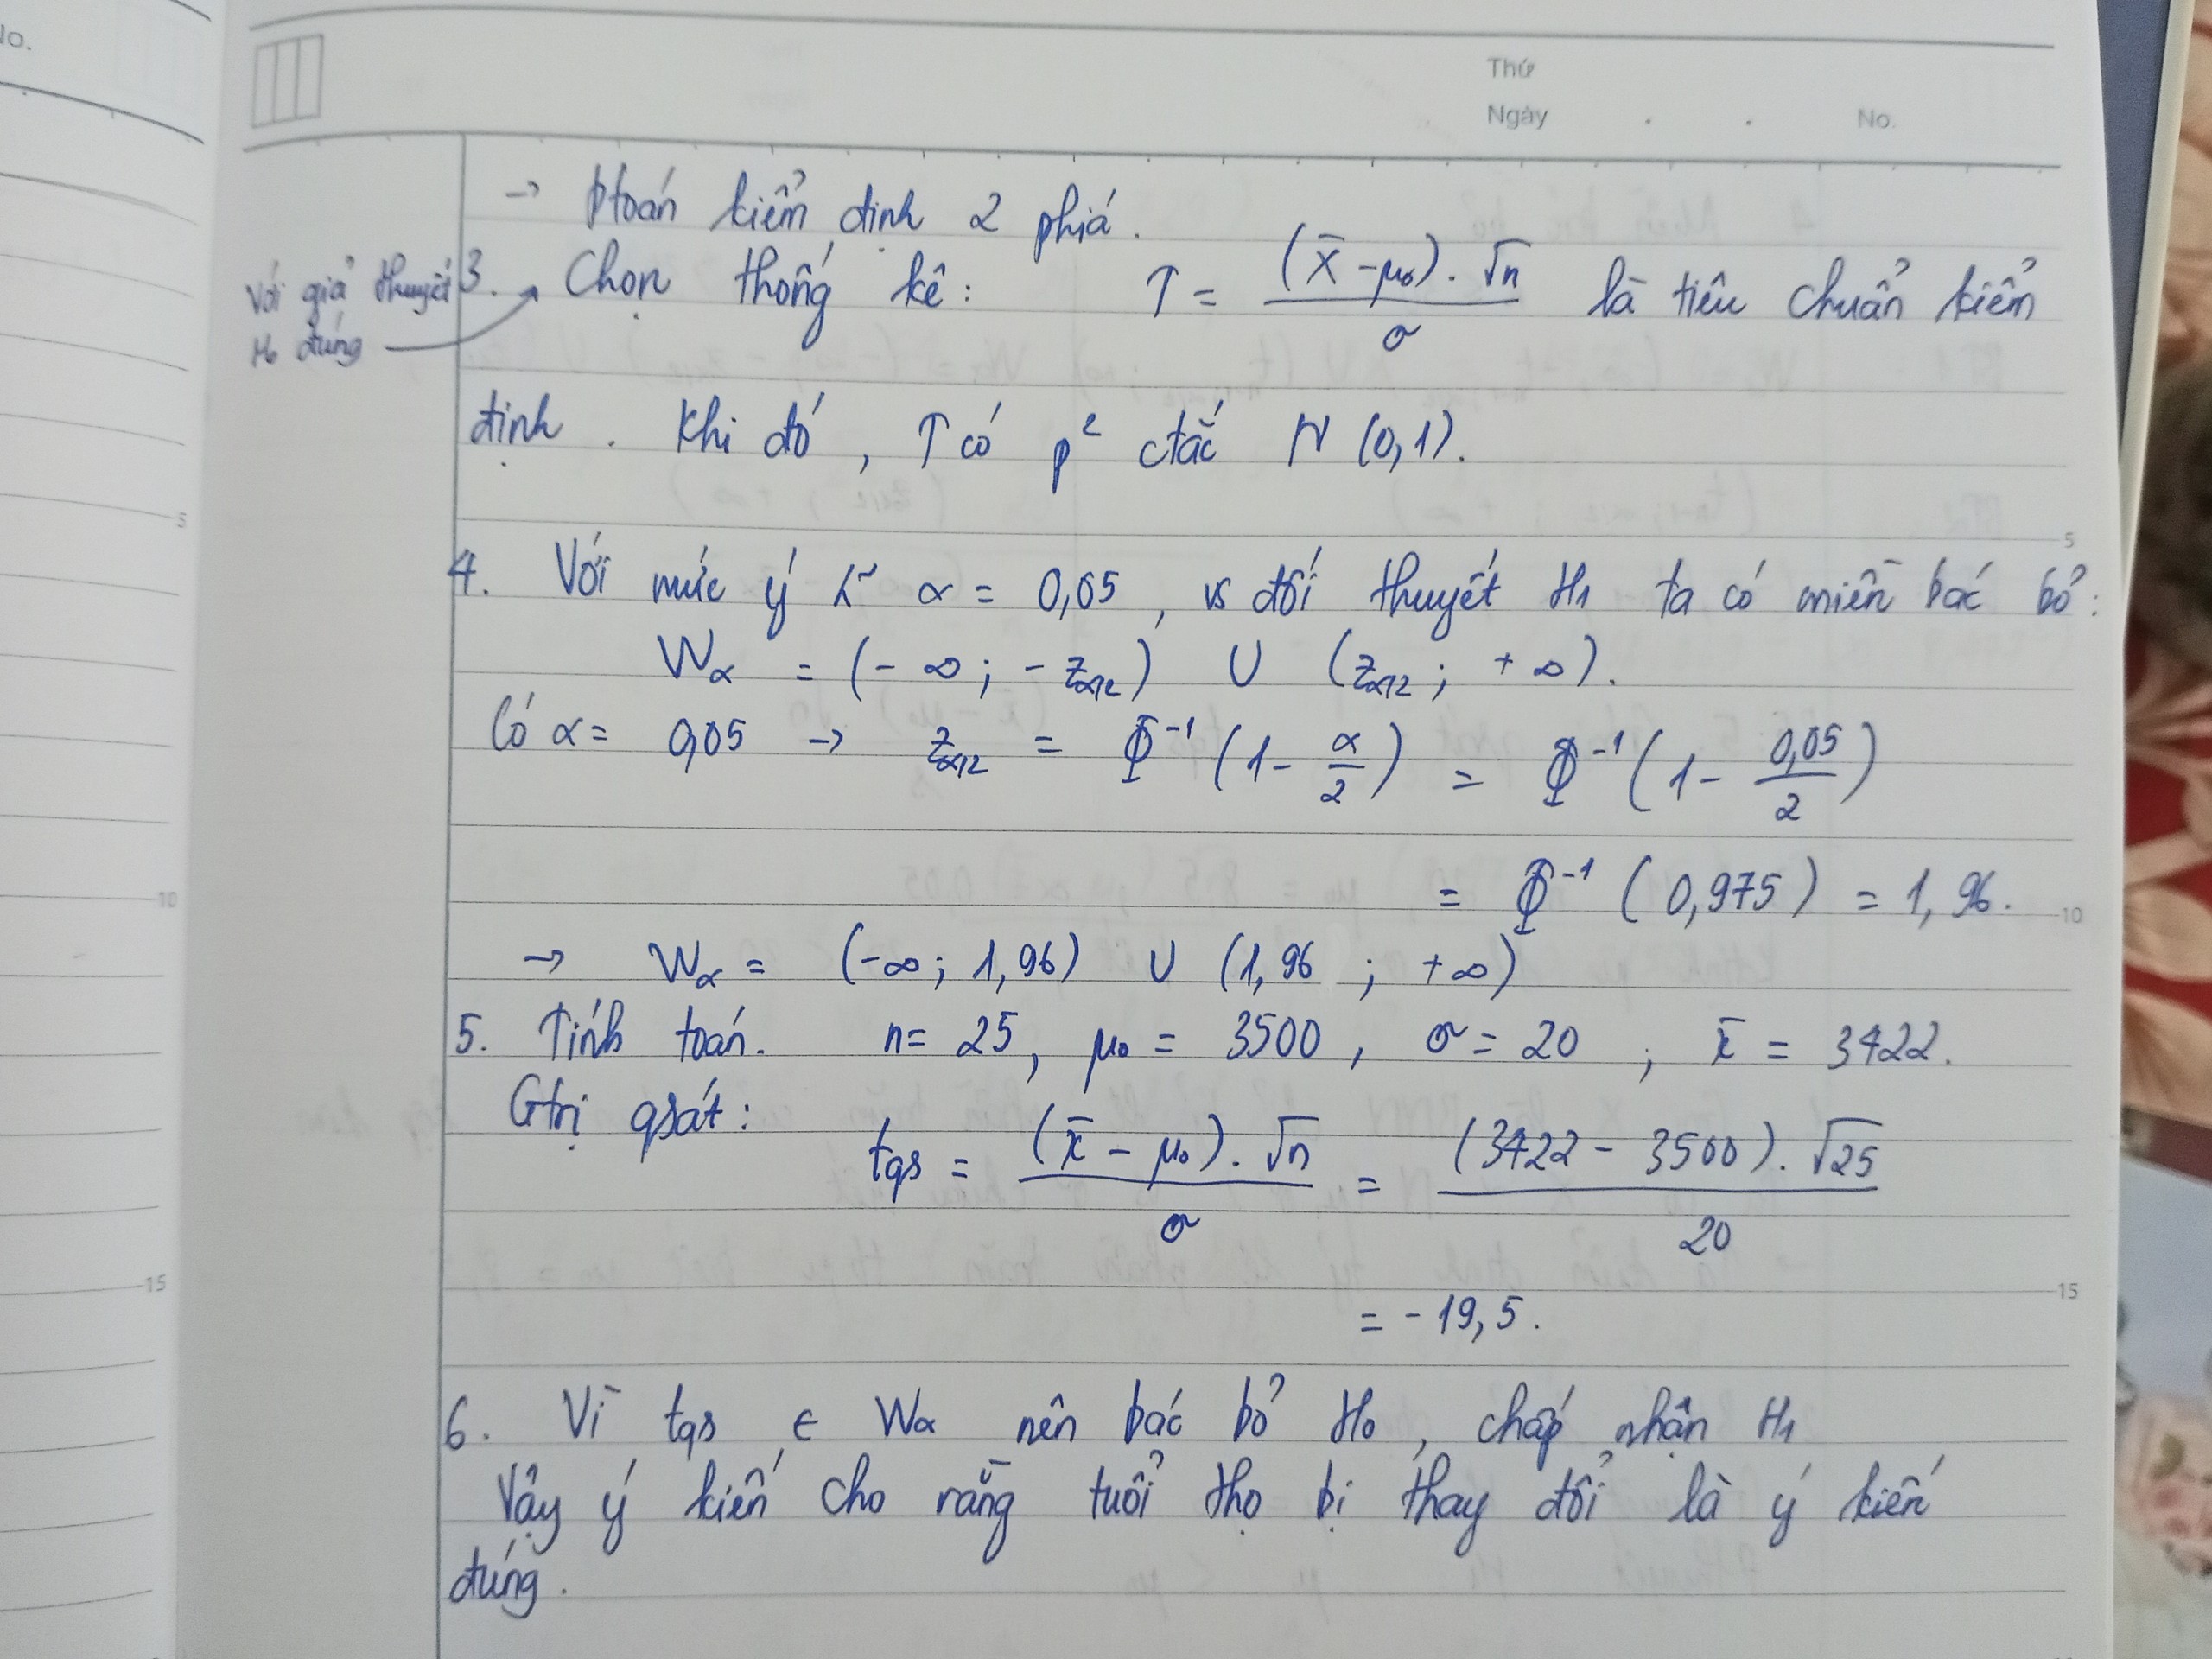 No.
Thứ
Ngày . . No.
→ btoán kiểm định 2 phiá.
Với giả thuyết H₀ đúng
3. Chọn thống kê: T = (X̄ - μ₀).√n / σ là tiêu chuẩn kiểm
định. Khi đó, T có p² ctắc N (0,1).
4. Với mức ý α = 0,05, vs đối thuyết H₁ ta có miền bác bỏ:
Wα = (-∞; -z_α/2) ∪ (z_α/2; +∞).
Có α = 0,05 → z_α/2 = Φ⁻¹(1 - α/2) = Φ⁻¹(1 - 0,05/2)
= Φ⁻¹ (0,975) = 1,96.
→ Wα = (-∞; 1,96) ∪ (1,96; +∞)
5. Tính toán. n = 25, μ₀ = 3500, σ = 20; x̄ = 3422.
Gtrị qsát: tqs = (x̄ - μ₀).√n / σ = (3422 - 3500).√25 / 20
= -19,5.
6. Vì tqs ∈ Wα nên bác bỏ H₀, chấp nhận H₁
Vậy ý kiến cho rằng tuổi thọ bị thay đổi là ý kiến
đúng.
5
10
15
5
10
15